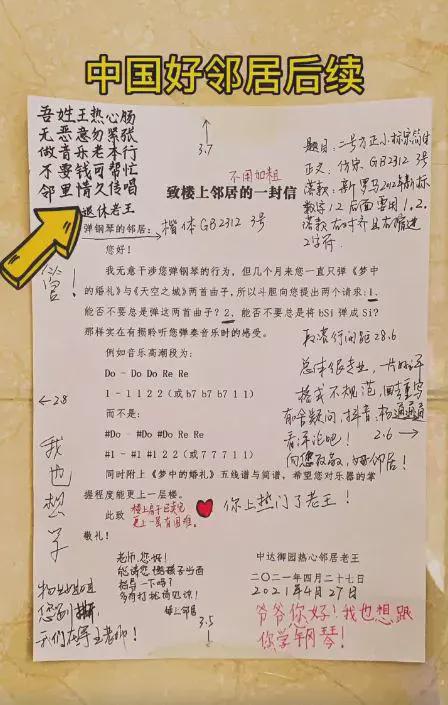 中国好邻居后续
吾姓王热心肠
无恶意勿紧张
做音乐老本行
不要钱可帮忙
邻里情久传唱
退休老王
3.7
不用加粗
致楼上邻居的一封信
题目:二号方正小标宋简体
正文:仿宋 GB2312 3号
落款:新罗马2012年新标
数字1.2后面要用1.2.
落款右对齐且右缩进
2字符.
弹钢琴的邻居:
楷体 GB2312 3号
您好!
我无意干涉您弹钢琴的行为,但几个月来您一直只弹《梦中
的婚礼》与《天空之城》两首曲子,所以斗胆向您提出两个请求:1、
能否不要总是弹这两首曲子?2、能否不要总是将 bSi 弹成 Si?
那样实在有损聆听您弹奏音乐时的感受。
例如音乐高潮段为:
Do - Do Do Re Re
1 - 1 1 2 2(或 b7 b7 b7 1 1)
而不是:
#Do - #Do #Do Re Re
#1 - #1 #1 2 2(或 7 7 7 1 1)
同时附上《梦中的婚礼》五线谱与简谱,希望您对乐器的掌
握程度能更上一层楼。
此致
敬礼!
段落行间距28.6
总体很专业,一片好评
格式不规范,回去重写
有啥疑问,抖音
看评论吧!
2.6
向您致敬,好邻居!
←28
我也想学
楼上房子已卖完
更上一层有困难。
你上热门了老王!
老师,您好!
能请您给孩子当面
指导一下吗?
多有打扰请见谅!
楼上邻居
中达御园热心邻居老王
二〇二一年四月二十七日
2021年4月27日
爷爷你好!我也想跟
你学钢琴!
您别撕
3.5